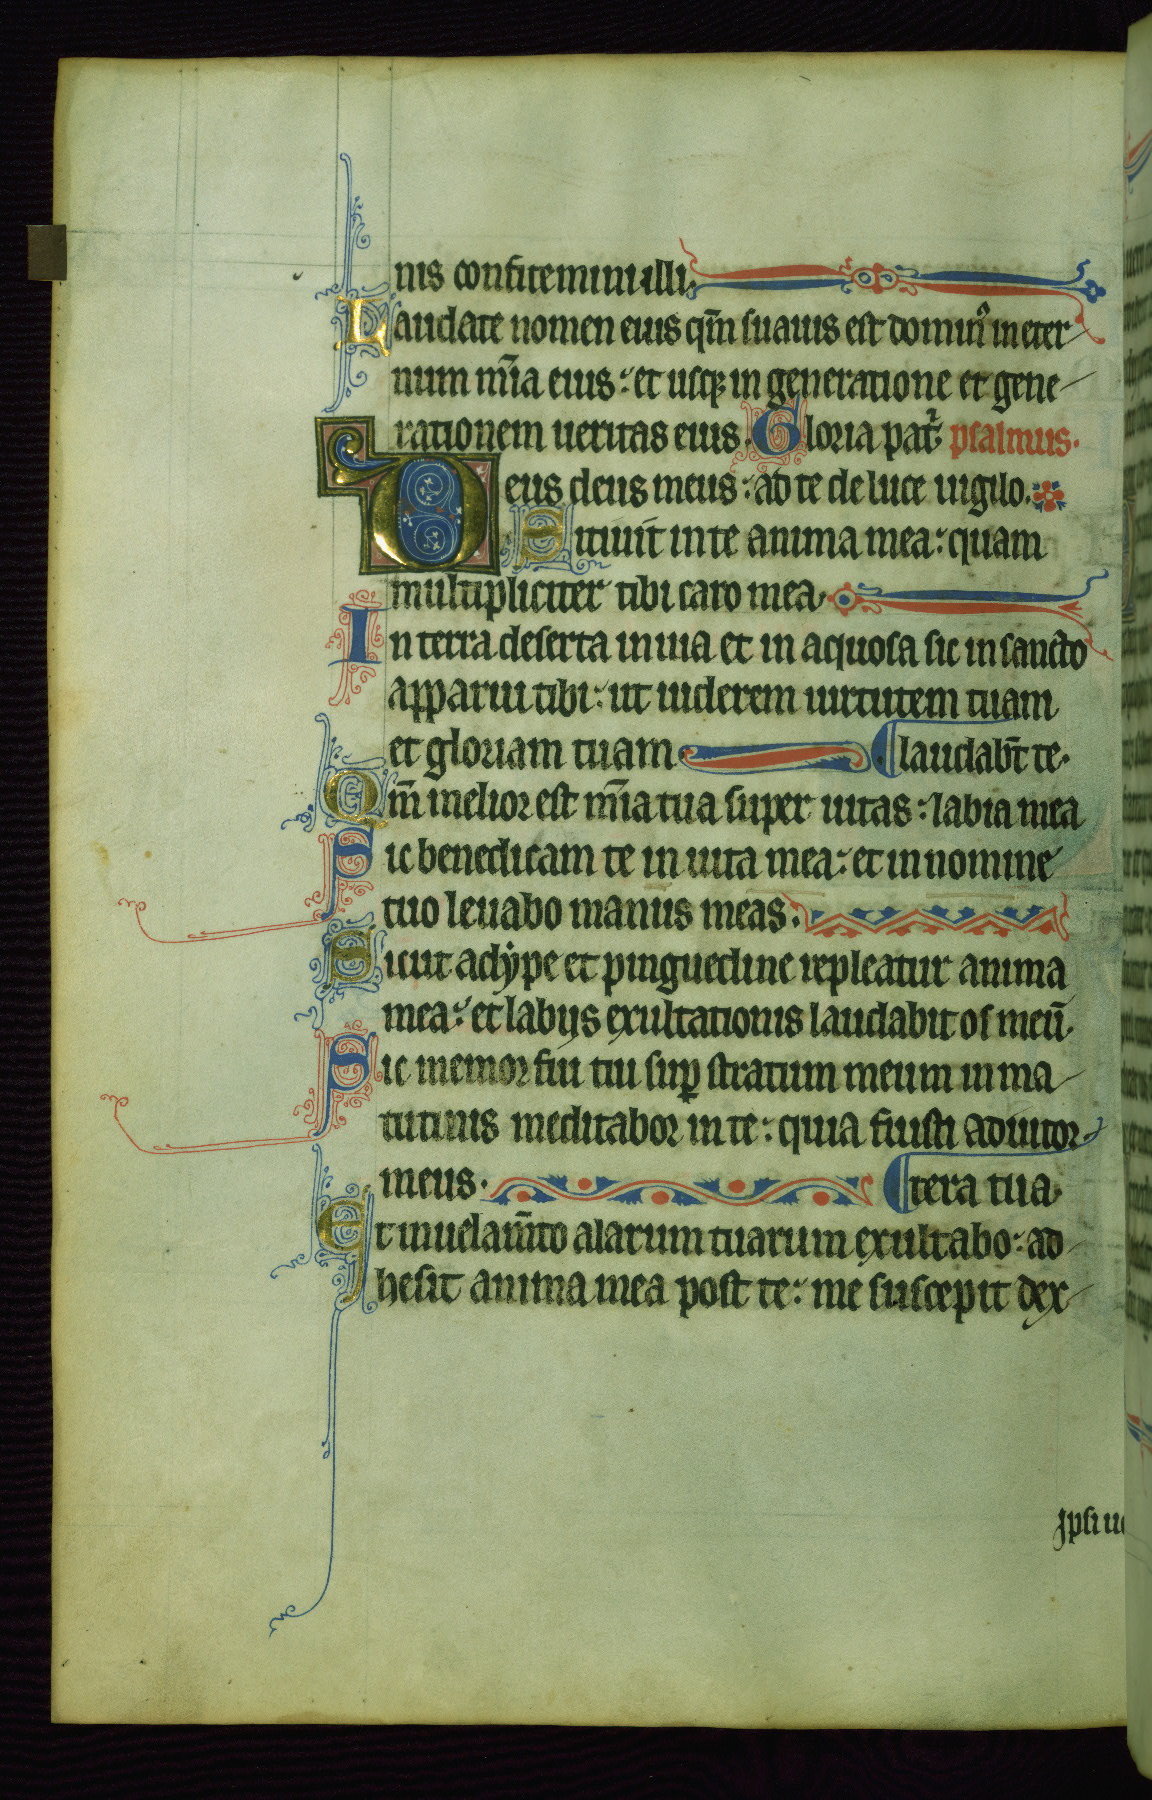 nis confitemini illi.
Laudate nomen eius qm̄ suauis est domin⁹ in eter
num mīa eius: et usq; in generatione et gene
rationem ueritas eius. Gloria pat̓. psalmus.
Deus deus meus: ad te de luce uigilo.
Sitiuit in te anima mea: quam
multipliciter tibi caro mea.
In terra deserta inuia et in aquosa sic in sancto
apparui tibi: ut uiderem uirtutem tuam
et gloriam tuam
laudab̄t te.
Qm̄ melior est mīa tua super uitas: labia mea
Sic benedicam te in uita mea: et in nomine
tuo leuabo manus meas.
Sicut adype et pinguedine repleatur anima
mea: et labiis exultationis laudabit os meū.
Sic memor fui tui suꝑ stratum meum in ma
tutinis meditabor in te: quia fuisti adiutor
meus.
tera tua.
Et in uelam̄to alarum tuarum exultabo: ad
hesit anima mea post te: me suscepit dex
Ipsi